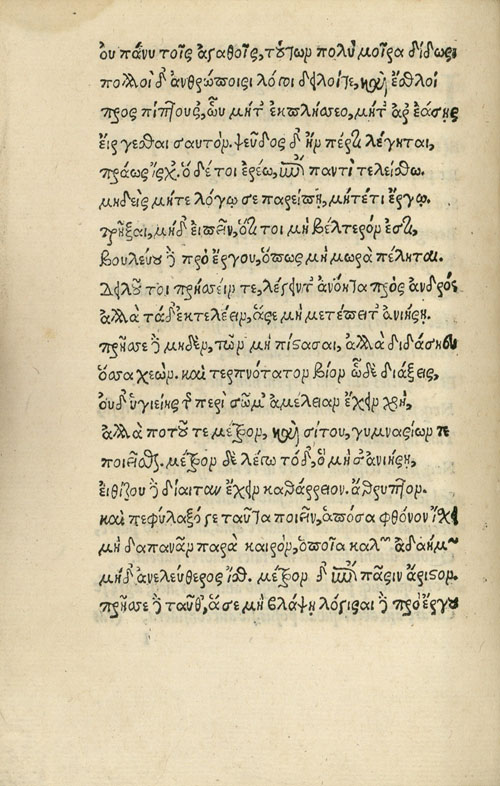 ου πάνυ τοῖς ἀγαθοῖς, τούτων πολὺ μοῖρα δίδωσι
πολλοὶ δ' ἀνθρώποισι λόγοι δειλοίτε, καὶ ἐσθλοὶ
προς πίπτους, ὧν μήτ' ἐκπλήσσεο, μήτ' ἀρ' ἐάσης
εἴργεσθαι σαυτὸν. ψεῦδος δ' ἤν πέρτι λέγηται,
πράως ἴσχ'. ὁ δέ τοι ἐρέω, ἐπὶ παντὶ τελείσθω.
μηδεὶς μήτε λόγῳ σε παρείπῃ, μήτέ τι ἔργῳ.
πρῆξαι, μήδ' εἰπεῖν, ὅτι τοι μὴ βέλτερόν ἐστι,
βουλεύου δὲ πρὸ ἔργου, ὅπως μὴ μωρὰ πέληται.
Δειλοῦ τοι πρήσσειν τε, λέγειντ' ἀνόητα πρὸς ἀνδρός
ἀλλὰ τάδ' ἐκτελέειν, ἅσε μὴ μετέπειτ' ἀνιήση.
πρῆσσε δὲ μηδὲν, τῶν μὴ πίστασαι, ἀλλὰ διδάσκου
ὅσσα χεὼν. καὶ τερπνότατον βίον ὧδε διάξεις,
ουδ' ὑγιείης τ περὶ σῶμ' ἀμέλειαν ἔχειν χρὴ,
ἀλλὰ ποτοῦ τε μέτρον, καὶ σίτου, γυμνασίων τε
ποιεῖσθαι. μέτρον δὲ λέγω τόδ', ὃ μή σ' ἀνιήσῃ,
εἰθίζου δὲ δίαιταν ἔχειν καθάρρειον. ἄθρυπτον.
καὶ πεφύλαξό γε ταῦτα ποιεῖν, ὁπόσα φθόνον ἴχει
μὴ δαπανᾶν παρὰ καιρὸν, ὁποῖα καλῶν ἀδαήμων
μήδ' ἀνελεύθερος ἴσθι. μέτρον δ' ἐπὶ πᾶσιν ἄριστον.
πρῆσσε δὲ ταῦθ', ἅ σε μὴ βλάψῃ λόγισαι δὲ πρὸ ἔργου